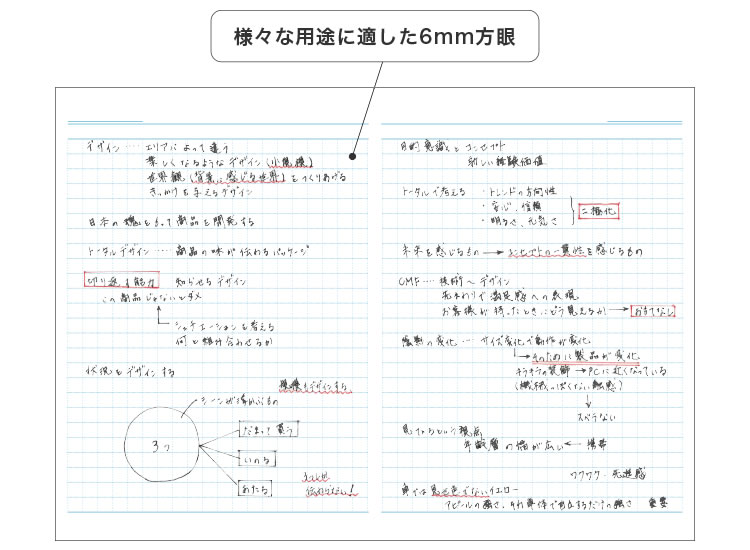 様々な用途に適した6mm方眼
デザイン…… エリアによって違う
楽しくなるようなデザイン
世界観(背景に感じる世界)をつくりあげる
きっかけを与えるデザイン
日本の 商品を開発する
トータルデザイン…… 商品の味が伝わるパッケージ
切り返す能力 知らせるデザイン
この商品じゃないとダメ
シチュエーションを考える
何と組み合わせるか
状況をデザインする
をデザインする
シーンが浮かぶもの
3つ
だまって買う
いのち
かたち
3つしか
伝わらない!
目的意識とコンセプト
新しい体験価値
トータルで考える ・トレンドの方向性
・安心、信頼
・明るさ、元気さ
二極化
未来を感じるもの→コンセプトの一貫性を感じるもの
CMF…… 技術へデザイン
手ざわりで満足感への表現
お客様が持ったときにどう見えるか→おもてなし
の変化…… サイズ変化で動作が変化
そのために製品が変化
キラキラの装飾→PCに近くなっている
(機械っぽくない触感)
スベらない
という視点
年齢層の幅が広い←携帯
ワクワク・先進感
イエロー
アピールの強さ、それ単体で目立つだけの強さ 重要